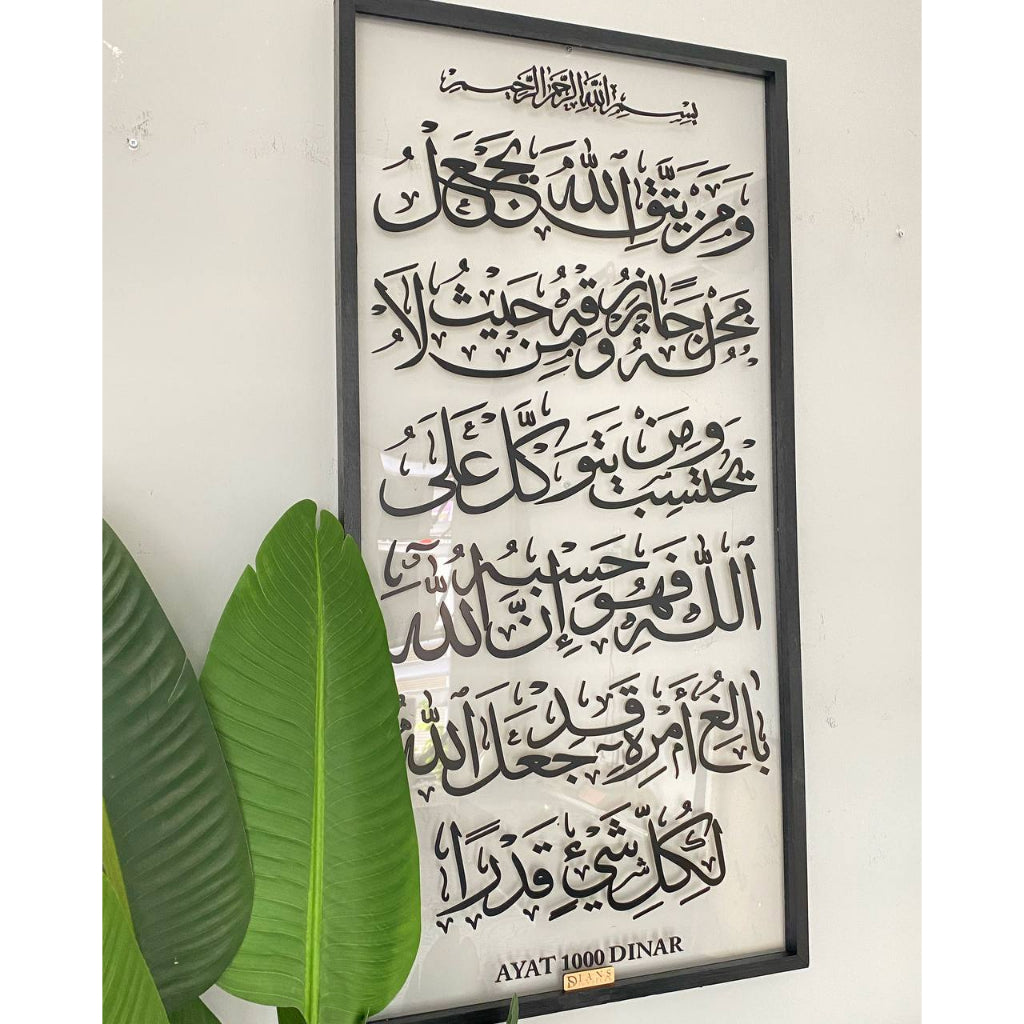 بِسْمِ اللَّهِ الرَّحْمَٰنِ الرَّحِيمِ
وَمَنْ يَتَّقِ اللَّهَ يَجْعَلْ
لَهُ مَخْرَجًا وَيَرْزُقْهُ مِنْ حَيْثُ لَا
يَحْتَسِبُ وَمَنْ يَتَوَكَّلْ عَلَى
اللَّهِ فَهُوَ حَسْبُهُ إِنَّ اللَّهَ
بَالِغُ أَمْرِهِ قَدْ جَعَلَ اللَّهُ
لِكُلِّ شَيْءٍ قَدْرًا
AYAT 1000 DINAR
DIANS